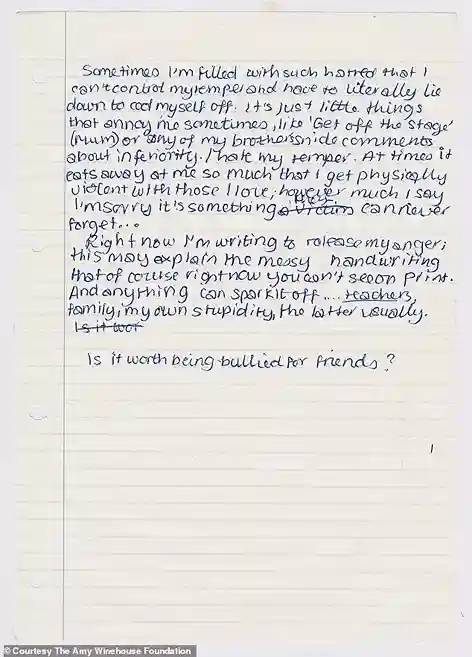 Sometimes I'm filled with such hatred that I
can't control my temper and have to literally lie
down to cool myself off. It's just little things
that annoy me sometimes, like 'Get off the stage'
(Mum) or any of my brothers snide comments
about inferiority. I hate my temper. At times it
eats away at me so much that I get physically
violent with those I love; however much I say
I'm sorry it's something they can never
forget...
Right now I'm writing to release my anger;
this may explain the messy handwriting
that of course right now you can't see on print.
And anything can spark it off .... teachers,
family, my own stupidity, the latter usually.
Is it wor
Is it worth being bullied for friends?
© Courtesy The Amy Winehouse Foundation